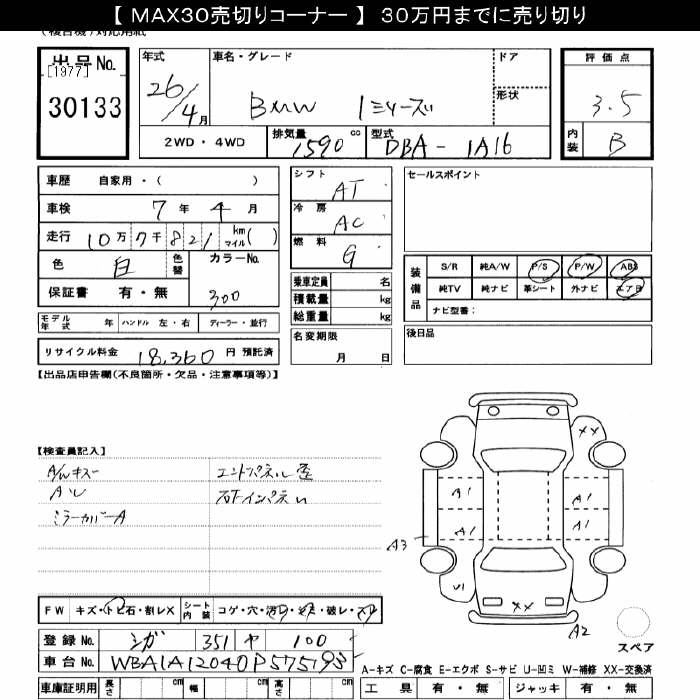 【 MAX30売切りコーナー 】 30万円までに売り切り
(複合機)対応用紙
出品No.
[1977]
30133
年式
26/4月
車名・グレード
BMW 1シリーズ
ドア
形状
評価点
3.5
内装
B
2WD・4WD
排気量 1590 cc
型式 DBA-1A16
車歴 自家用・( )
車検 7年 4月
走行 10万 7千 8 2 1 km マイル( )
色 白 色替 カラーNo.
300
保証書 有・無
シフト AT
冷房 AC
燃料 G
セールスポイント
乗車定員 名
積載量 kg
総重量 kg
装備品
S/R 純A/W P/S P/W ABS
純TV 純ナビ 革シート 外ナビ エアB
ナビ型番:
モデル年式 年 ハンドル 左・右 ディーラー・並行
名変期限
月 日
後日品
リサイクル料金 18,360 円 預託済
【出品店申告欄(不良箇所・欠品・注意事項等)】
【検査員記入】
A/Wキズ
ミラーカバーA
XX
A1 A1
A1 A1
A3
XX
A2
スペア
FW キズ・トビ石・割レX シート内装 コゲ・穴・汚レ・・破レ・スレ
登録No. シガ 351 ヤ 100
車台No. WBA1A12040P575193
A-キズ C-腐食 E-エクボ S-サビ U-凹ミ W-補修 XX-交換済
車庫証明用 長さ cm 幅 cm 高さ cm
工具 有・無 ジャッキ 有・無